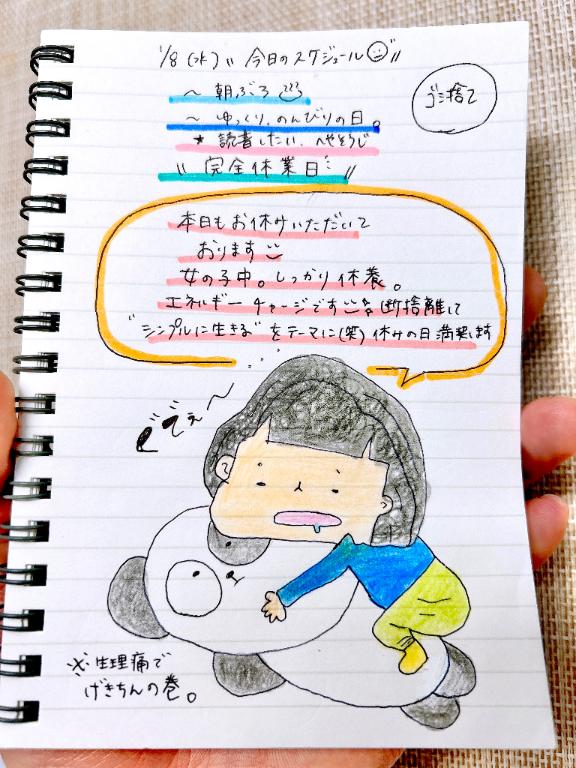 1/8(水)〃 今日のスケジュール〃
ゴミ捨て
~ 朝ぶろ
~ ゆっくり、のんびりの日。
★読書したい、へやそうじ
〃完全休業日〃
本日もお休みいただいて
おります
女の子中。しっかり休養。
エネルギーチャージです 断捨離して
"シンプルに生きる"をテーマに(笑)休みの日満喫します
どでぇ〜
※生理痛で
げきちんの巻。